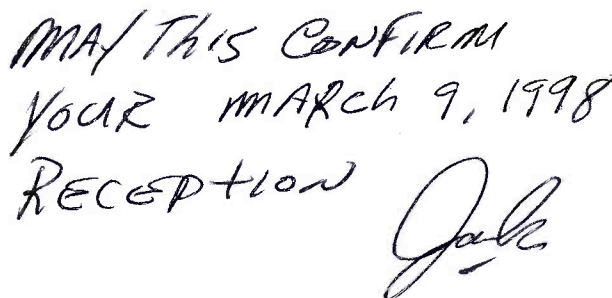 MAY This CONFIRM
YOUR MARCH 9, 1998
RECEPTION
Jack